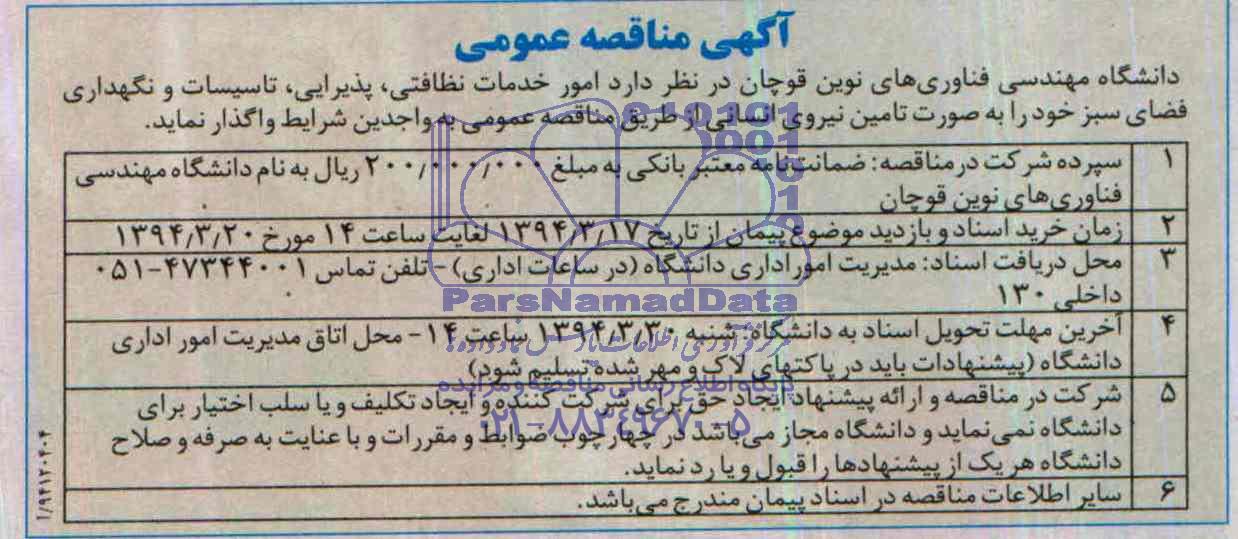 آگهی مناقصه عمومی
دانشگاه مهندسی فناوری‌های نوین قوچان در نظر دارد امور خدمات نظافتی، پذیرایی، تاسیسات و نگهداری
فضای سبز خود را به صورت تامین نیروی انسانی از طریق مناقصه عمومی به واجدین شرایط واگذار نماید.
۱ سپرده شرکت در مناقصه: ضمانت‌نامه معتبر بانکی به مبلغ ۲۰۰/۰۰۰/۰۰۰ ریال به نام دانشگاه مهندسی
فناوری‌های نوین قوچان
۲ زمان خرید اسناد و بازدید موضوع پیمان از تاریخ ۱۳۹۴/۳/۱۷ لغایت ساعت ۱۴ مورخ ۱۳۹۴/۳/۲۰
۳ محل دریافت اسناد: مدیریت امور اداری دانشگاه (در ساعات اداری) - تلفن تماس ۴۷۳۴۴۰۰۱-۰۵۱
داخلی ۱۳۰
۴ آخرین مهلت تحویل اسناد به دانشگاه: شنبه ۱۳۹۴/۳/۳۰ ساعت ۱۴ - محل اتاق مدیریت امور اداری
دانشگاه (پیشنهادات باید در پاکتهای لاک و مهر شده تسلیم شود)
۵ شرکت در مناقصه و ارائه پیشنهاد ایجاد حق برای شرکت کننده و ایجاد تکلیف و یا سلب اختیار برای
دانشگاه نمی‌نماید و دانشگاه مجاز می‌باشد در چهارچوب ضوابط و مقررات و با عنایت به صرفه و صلاح
دانشگاه هر یک از پیشنهادها را قبول و یا رد نماید.
۶ سایر اطلاعات مناقصه در اسناد پیمان مندرج می‌باشد.
۱/۹۴۱۲۰۴۰۴
ParsNamadData
پایگاه اطلاع رسانی مناقصه و مزایده
۰۲۱-۸۸۳۴۹۶۷۰-۵